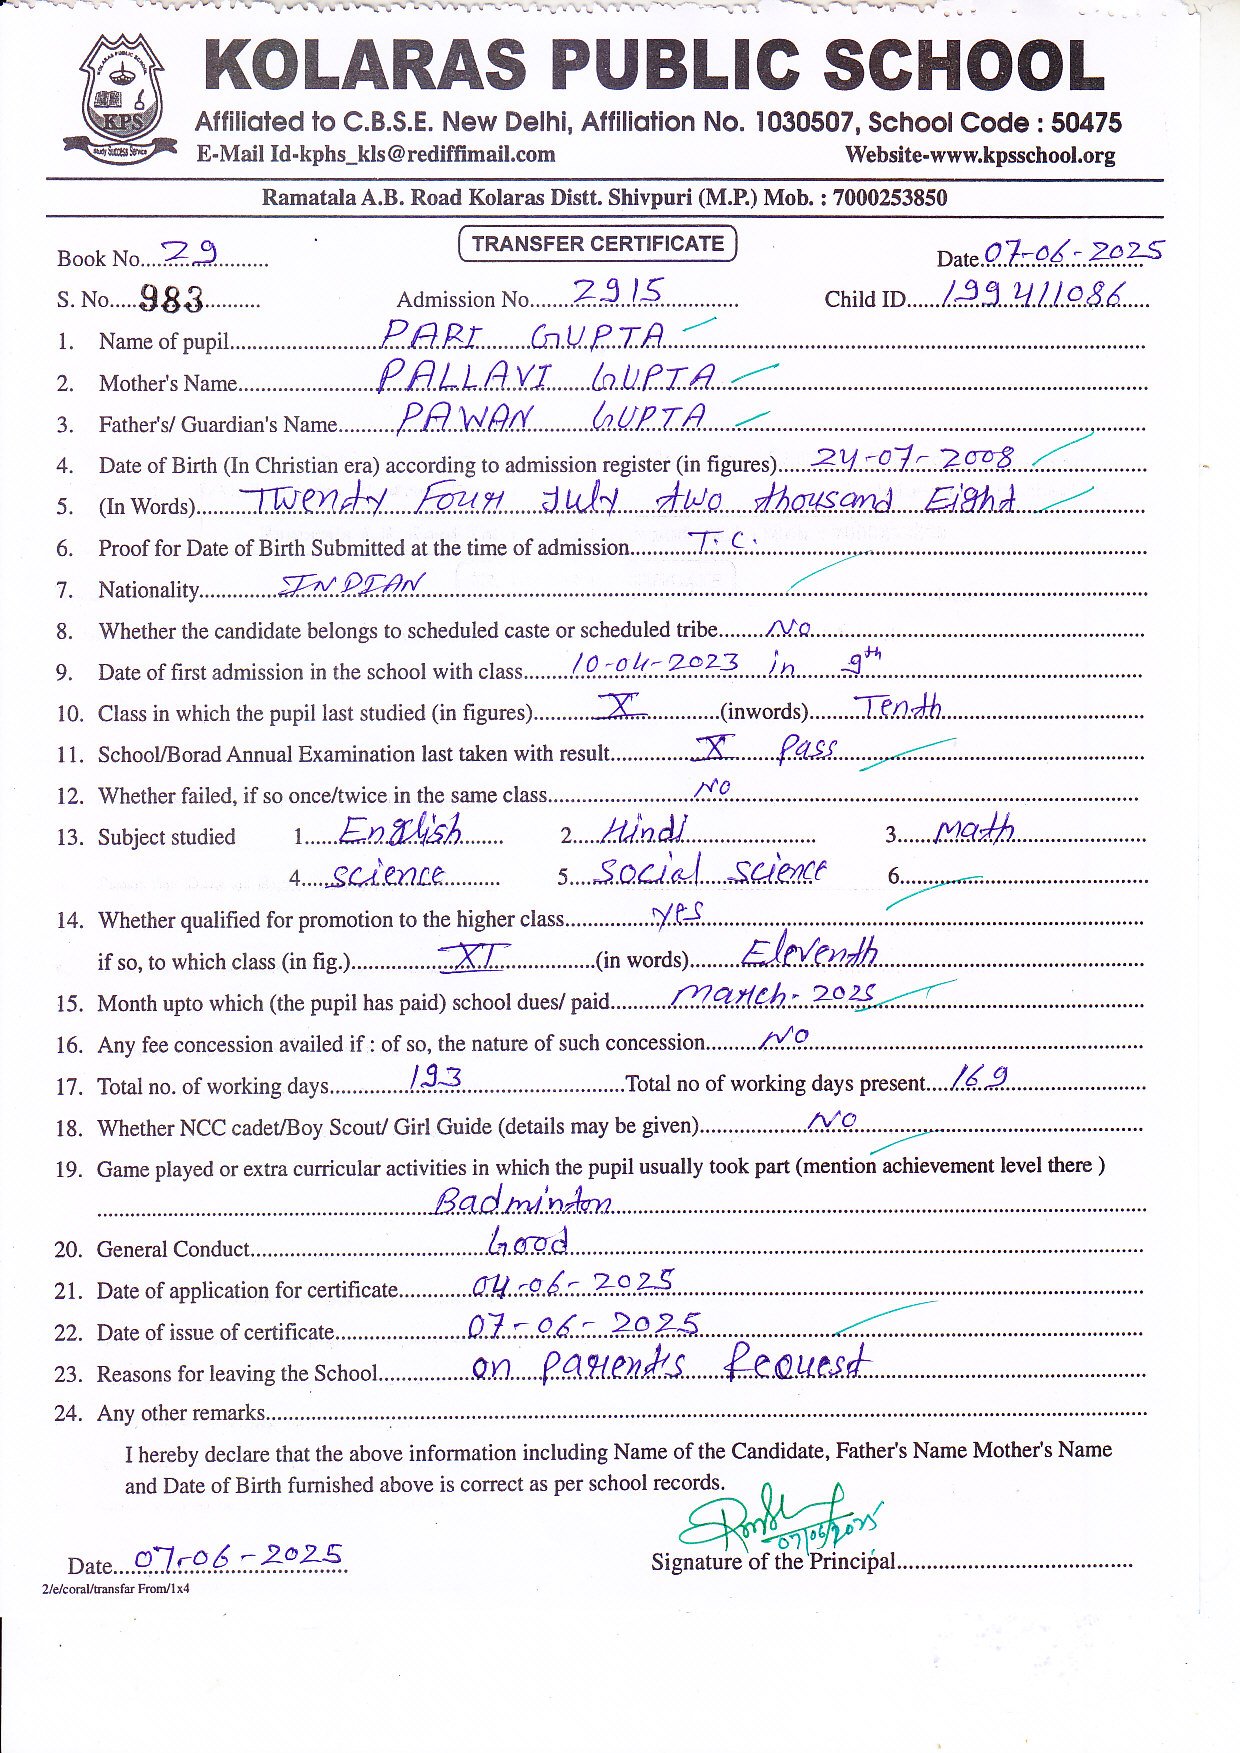 KOLARAS PUBLIC SCHOOL
Affiliated to C.B.S.E. New Delhi, Affiliation No. 1030507, School Code : 50475
E-Mail Id-kphs_kls@rediffimail.com Website-www.kpsschool.org
KPS
Study Success Service
Ramatala A.B. Road Kolaras Distt. Shivpuri (M.P.) Mob. : 7000253850
TRANSFER CERTIFICATE
Book No....29.......... Date.07-06-2025
S. No.....983.......... Admission No.......2915............. Child ID......199411086....
1. Name of pupil......PARI GUPTA
2. Mother's Name......PALLAVI GUPTA
3. Father's/ Guardian's Name......PAWAN GUPTA
4. Date of Birth (In Christian era) according to admission register (in figures).....24-07-2008
5. (In Words)......Twenty Four July two thousand Eight
6. Proof for Date of Birth Submitted at the time of admission......T.C.
7. Nationality......INDIAN
8. Whether the candidate belongs to scheduled caste or scheduled tribe......No
9. Date of first admission in the school with class......10-04-2023 in 9th
10. Class in which the pupil last studied (in figures)......X......(inwords)......Tenth
11. School/Borad Annual Examination last taken with result......X Pass
12. Whether failed, if so once/twice in the same class......NO
13. Subject studied 1....English...... 2....Hindi...... 3....Math
4....science...... 5....Social science 6......
14. Whether qualified for promotion to the higher class......yes
if so, to which class (in fig.)......XI......(in words)......Eleventh
15. Month upto which (the pupil has paid) school dues/ paid......March-2025
16. Any fee concession availed if : of so, the nature of such concession......NO
17. Total no. of working days......193......Total no of working days present....169
18. Whether NCC cadet/Boy Scout/ Girl Guide (details may be given)......NO
19. Game played or extra curricular activities in which the pupil usually took part (mention achievement level there )
......Badminton
20. General Conduct......Good
21. Date of application for certificate......04-06-2025
22. Date of issue of certificate......07-06-2025
23. Reasons for leaving the School......on parents Request
24. Any other remarks......
I hereby declare that the above information including Name of the Candidate, Father's Name Mother's Name
and Date of Birth furnished above is correct as per school records.
07/06/2025
Date....07-06-2025 Signature of the Principal......
2/e/coral/transfar From/1x4